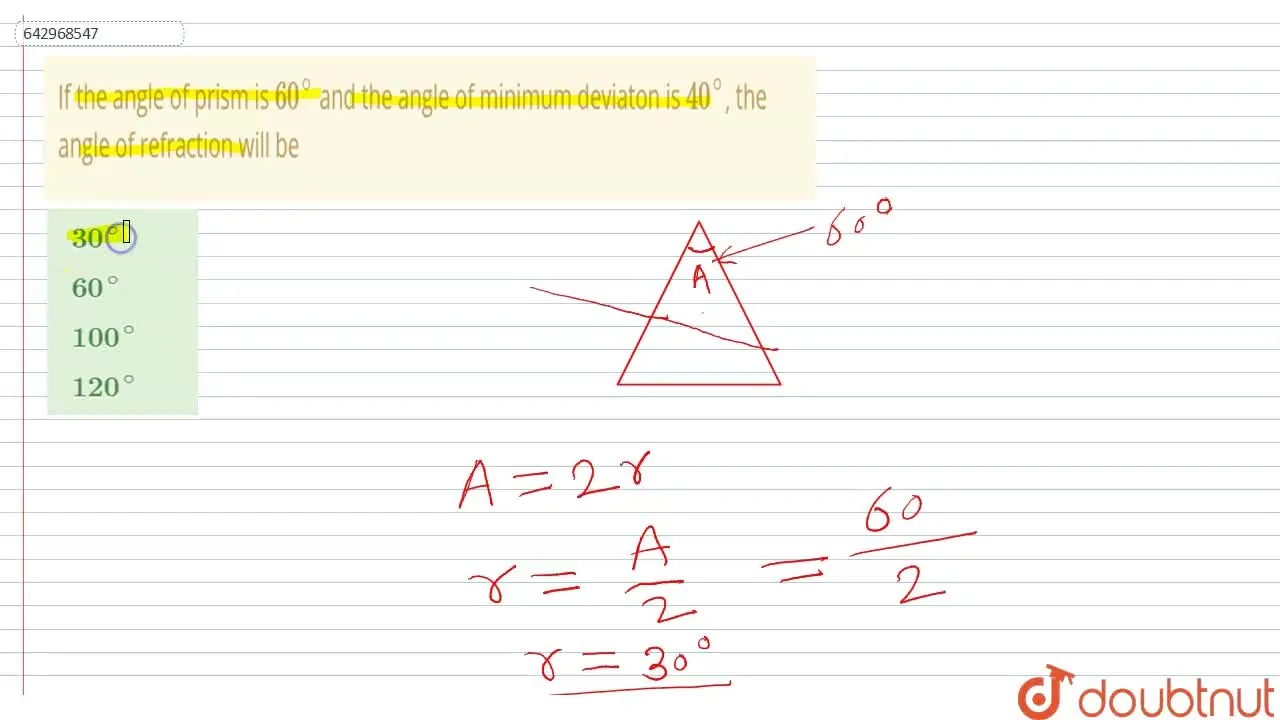 642968547
If the angle of prism is 60° and the angle of minimum deviaton is 40°, the
angle of refraction will be
30°
60°
100°
120°
60°
A
A = 2r
r = A/2 = 60/2
r = 30°
doubtnut